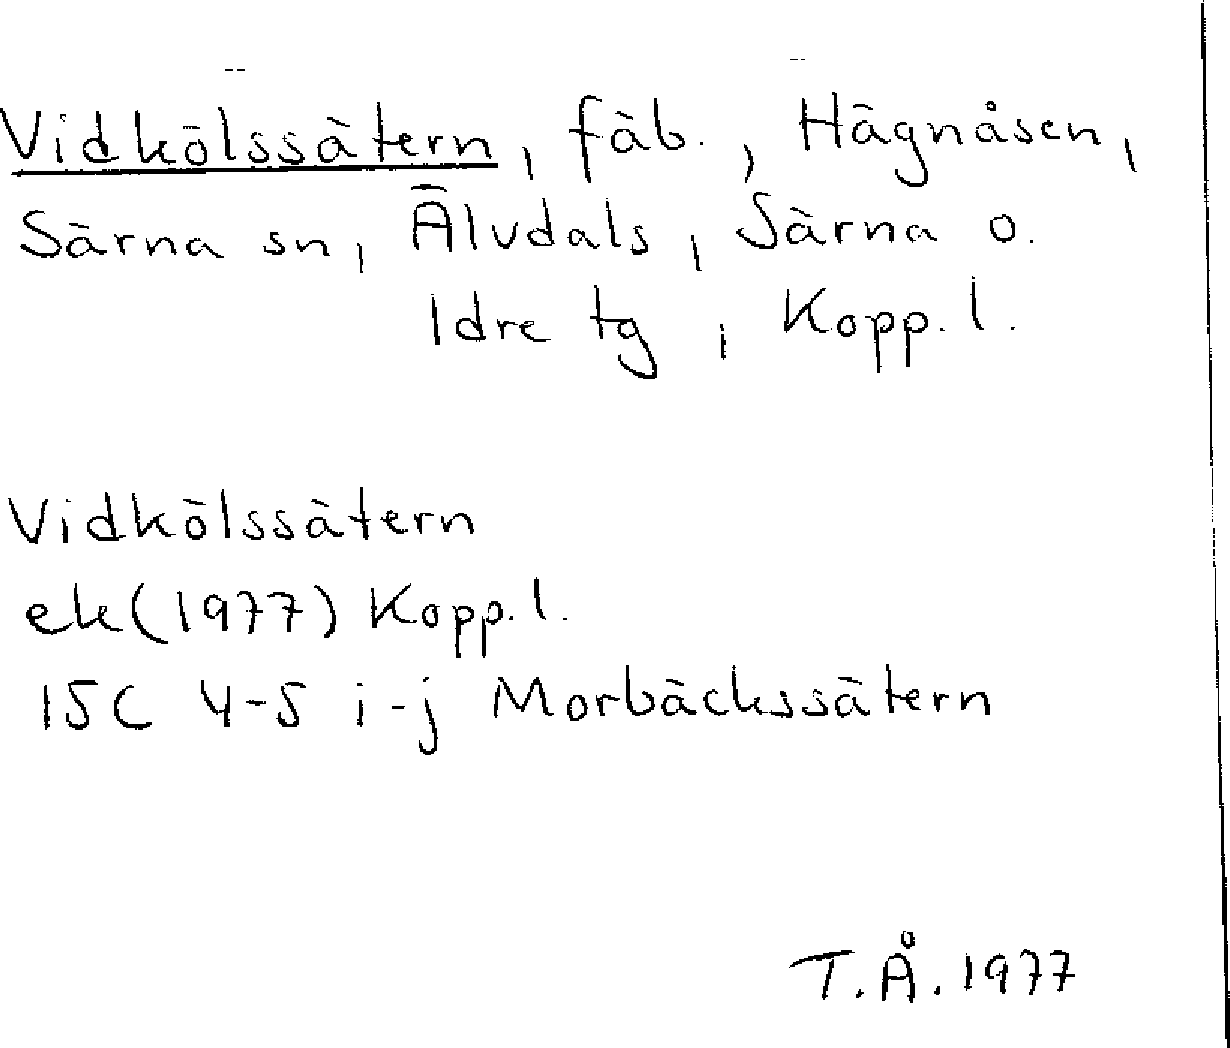 Vidkölssätern, fäb., Hägnåsen,
Särna sn, Älvdals, Särna o.
Idre tg, Kopp. l.
Vidkölssätern
ek (1977) Kopp. l.
15C 4-5 i-j Morbäckssätern
T.Å. 1977